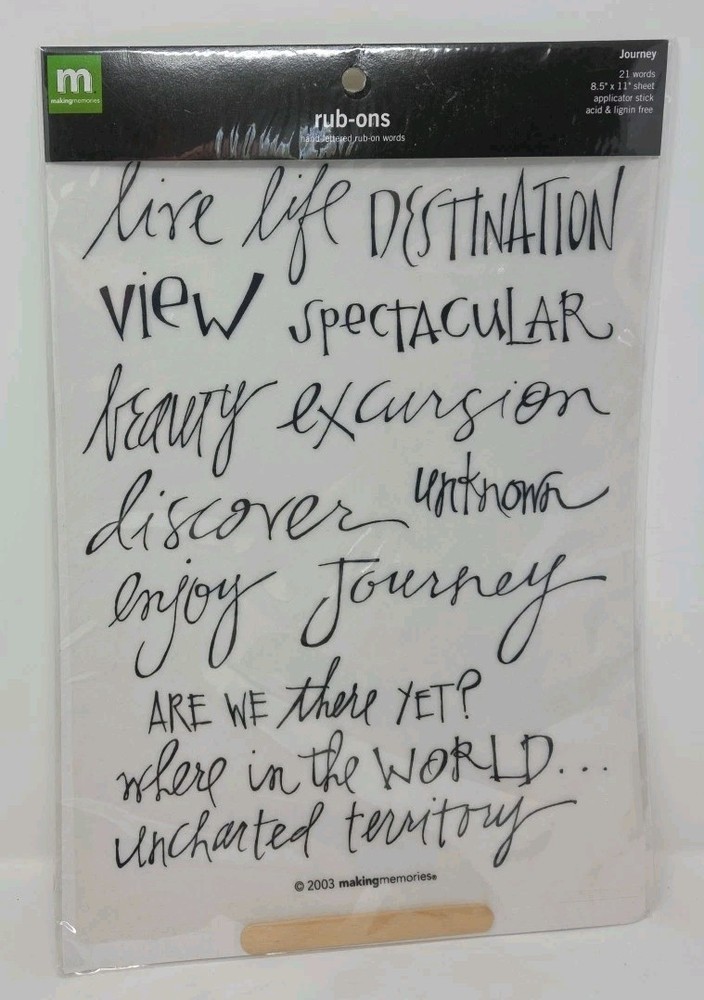 m
makingmemories
Journey
21 words
8.5" x 11" sheet
applicator stick
acid & lignin free
rub-ons
hand-lettered rub-on words
live life DESTINATION
view spectACULAR
beauty excursion
discover unknown
enjoy Journey
ARE WE there YET?
where in the WORLD...
uncharted territory
© 2003 makingmemories®